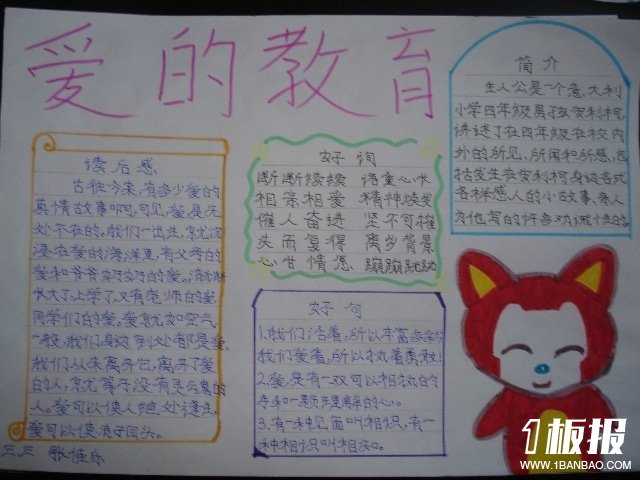 爱的教育
读后感
古往今来,有多少爱的
真情故事啊,可见,爱是无
处不在的。我们一出生,就沉
浸在爱的海洋里,有父母的
爱和爷爷奶奶的爱。渐渐
长大了,上学了,又有老师的爱,
同学们的爱。爱就如空气
一般,我们身边到处都是爱,
我们从未离开它,离开了爱
的人,就等于没有灵魂的
人。爱可以使人绝处逢生,
爱可以使浪子回头。
三.三 张佳乐
好词
断断续续 语重心长
相亲相爱 精神焕发
催人奋进 坚不可摧
失而复得 离乡背景
心甘情愿 蹦蹦跳跳
好句
1.我们活着,所以丰富多彩,
我们爱着,所以执着勇敢
2.爱,是有一双可以相执的
手和一颗步理解的心。
3.有一种见面叫相识,有一
种相识叫相知。
简介
主人公是一个意大利
小学四年级男孩安利柯,
讲述了在四年级在校内
外的所见、所闻和所感,包
括发生在安利柯身边各式
各样感人的小故事,亲人
为他写的许多劝诫性的
1板报
WWW.1BANBAO.COM